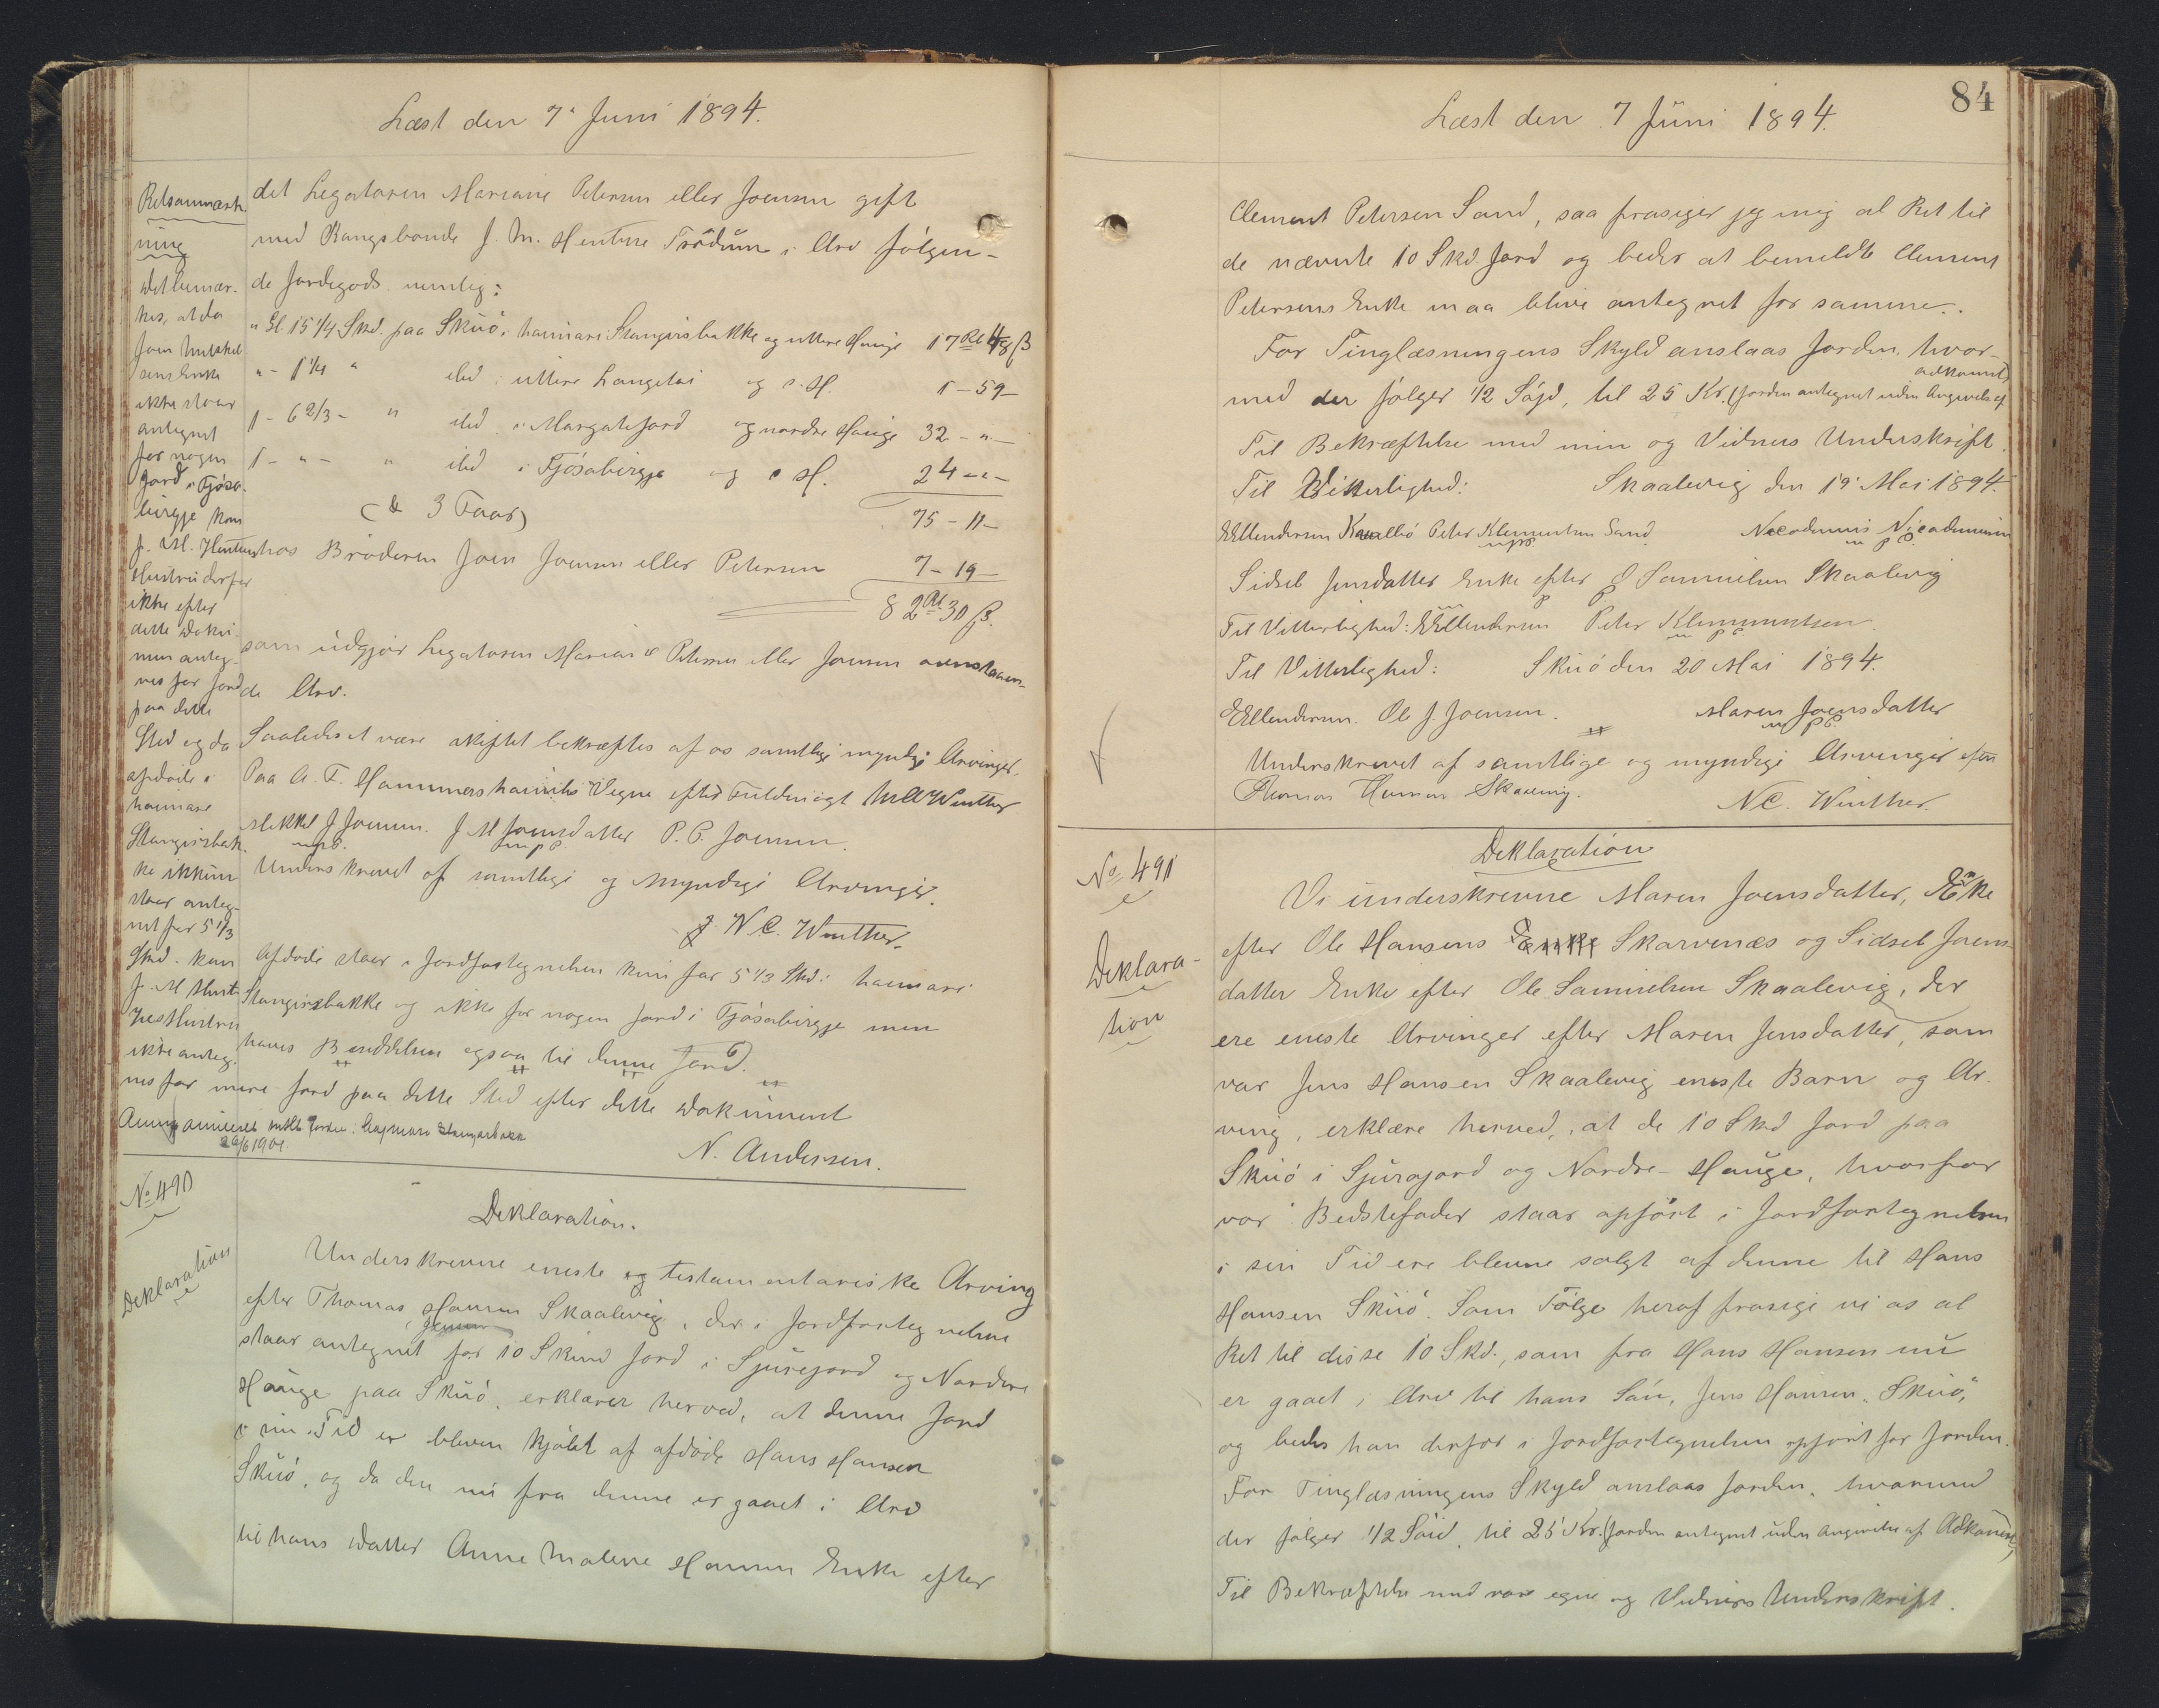 Læst den 7' Juni 1894.
det Legatoren Mariane Petersen eller Joensen gift
med Kongsbonde J. M. Hentze Trödum i Arv følgen-
de Jordegods nemlig:
" Gl. 15 1/4 Skd. paa Skuö i haimari Stangirsbakke og uttere Hauge 17 Rd 48 ß
" - 1 1/4 " ibd i uttere Langetai og s. H. 1 - 59 -
1 - 6 2/3 - " ibd i Margatefjord og nordre Hauge 32 - " -
1 - " - " ibd i Tjósabirgje og s H. 24 - " -
(& 3 Faar) 75 - 11 -
hos Bröderen Joen Joensen eller Petersen 7 - 19 -
82 Rd 30 ß.
som udgjör Legatoren Mariane Petersen eller Joensen ovenstaaen-
de Arv.
Saaledes at være skiftet bekræftes af os samtlige myndige Arvinger.
Paa A. F. Hammershaimbs Vegne efter Fuldmagt M A Winther
Mikkel J Joensen. J M Joensdatter P. P. Joensen.
mpS. m p P.
Underskrevet af samtlige og myndige Arvinger.
J. N C. Winther.
Afdöde staar i Jordfortegnelsen kun for 5 1/3 Skd. i haimari
Stangirsbakke og ikke for nogen Jord i Tjósabirgje men
haves Besiddelsen ogsaa til denne Jord.
Retsanmærk-
ning
Det bemær-
kes, at da
Joen Mikkel
sens Enke
ikke staar
antegnet
for nogen
Jord i Tjósa-
birgje kan
J. M. Hentzes
Hustru derfor
ikke efter
dette Doku-
ment anteg-
nes for Jord
paa dette
Sted og da
afdöde i
haimare
Stangirsbak-
ke ikkun
staar anteg-
net for 5 1/3
Skd. kan
J. M Hent-
zes Hustru
ikke anteg-
nes for mere Jord paa dette Sted efter dette Dokument
N. Andersen.
26/6 1901.
No 490
Deklaration
Deklaration.
Underskrevne eneste og testamentariske Arving
efter Thomas Hansen Skaalevig, der i Jordfortegnelsen
Jensen
staar antegnet for 10 Skind Jord i Sjurejord og Nordre
Hauge paa Skuö, erklærer herved, at denne Jord
i sin Tid er bleven kjöbt af afdöde Hans Hansen
Skuö, og da den nu fra denne er gaaet i Arv
til hans Datter Anne Malene Hansen Enke efter
84
Læst den 7 Juni 1894.
Clement Petersen Sand, saa frasiger jeg mig al Ret til
de nævnte 10 Skd. Jord og beder at bemeldte Clement
Petersens Enke maa blive antegnet for samme.
For Tinglæsningens Skyld anslaas Jorden, hvor-
med der fölger 1/2 Söjd, til 25 Kr. (Jorden antegnet uden Angivelse af
Adkomst)
Til Bekræftelse med min og Vidners Underskrift.
Til Vitterlighed: Skaalevig den 19' Mai 1894.
E Ellendersen Peter Klementsen Sand Nicodemus Nicodemussen
mpS. m p P.
Sidsel Jensdatter Enke efter O Samuelsen Skaalevig
Til Vitterlighed: E Ellendersen Peter Klementsen
m p P
Til Vitterlighed: Skuö den 20 Mai 1894.
E Ellendersen. Ole J. Joensen. Maren Joensdatter
m p P.
Underskrevet af samtlige og myndige Arvinger efter
Thomas Hansen Skaalevig. N C. Winther.
No 491
Deklara-
tion
Deklaration
Vi underskrevne Maren Joensdatter, Enke
efter Ole Hansens Skarvenæs og Sidsel Joens-
datter Enke efter Ole Samuelsen Skaalevig, der
ere eneste Arvinger efter Maren Jensdatter, som
var Jens Hansen Skaalevig eneste Barn og Ar-
ving, erklære herved, at de 10 Skd Jord paa
Skuö i Sjurajord og Nordre-Hauge, hvorfor
vor Bedstefader staar opfört i Jordfortegnelsen
i sin Tid ere blevne solgt af denne til Hans
Hansen Skuö. Som Fölge heraf frasige vi os al
Ret til disse 10 Skd., som fra Hans Hansen nu
er gaaet i Arv til hans Sön, Jens Hansen "Skuö,"
og bedes han derfor i Jordfortegnelsen opfört for Jorden.
For Tinglæsningens Skyld anslaas Jorden, hvormed
der fölger 1/2 Söid, til 25 Kr. (Jorden antegnet uden Angivelse af Adkomst)
Til Bekræftelse med vore egne og Vidners Underskrift.